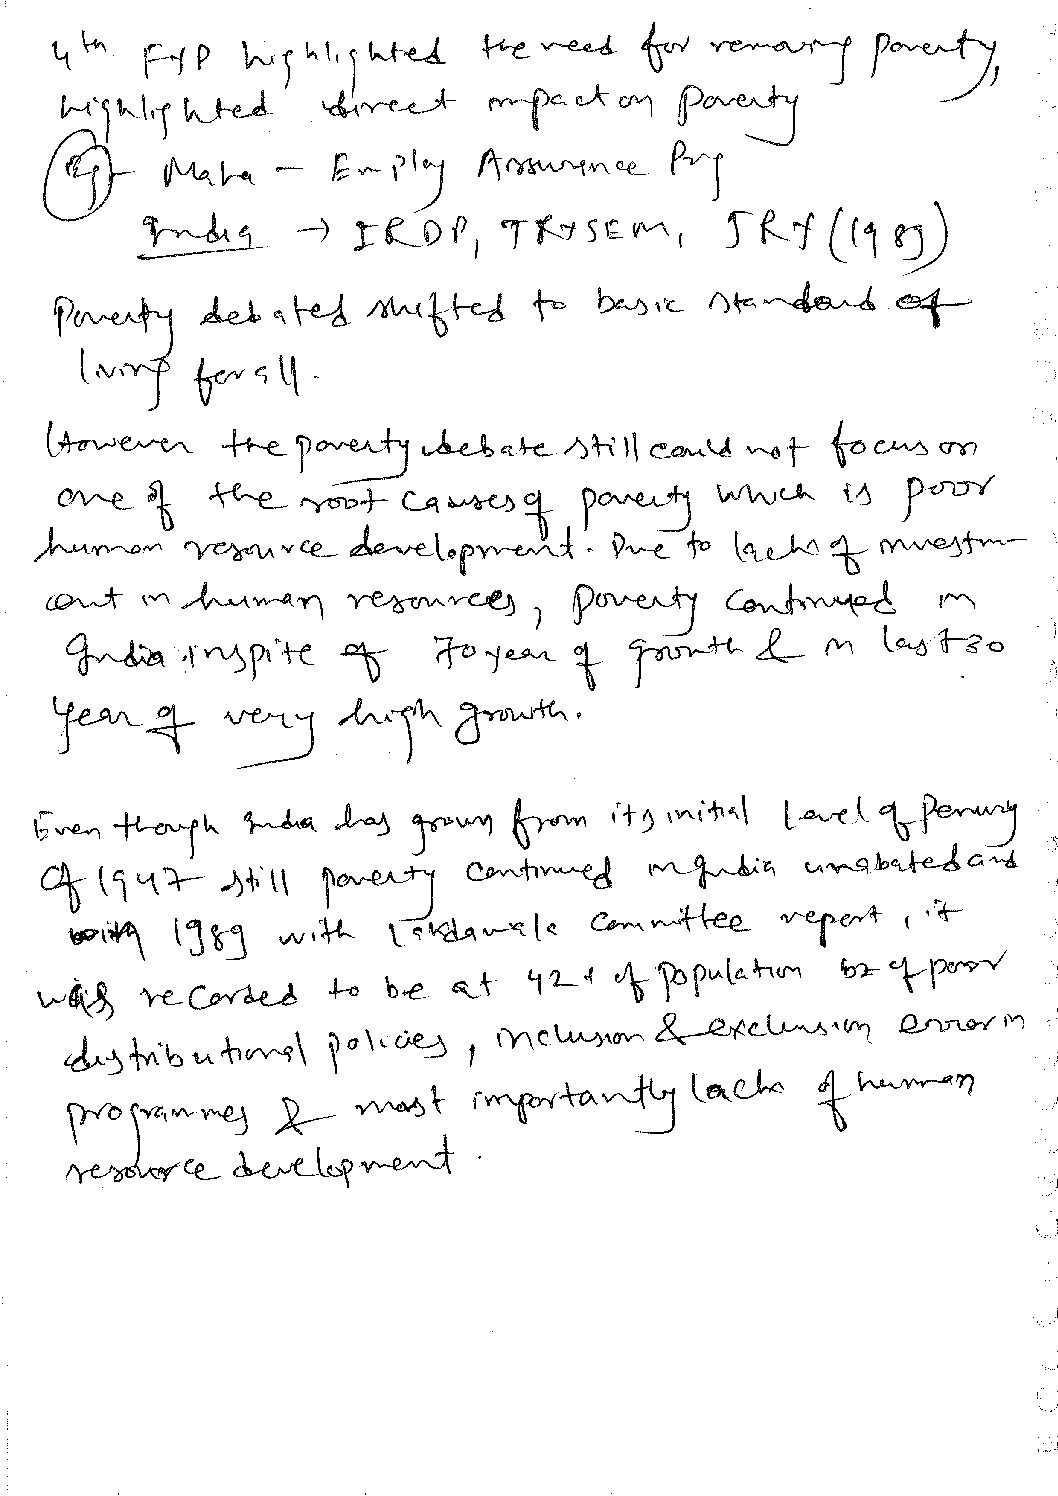 4th FYP highlighted the need for removing poverty,
highlighted direct impact on poverty
Eg - Maha - Employ Assurance Prg
India → IRDP, TRYSEM, JRY (1989)
Poverty debated shifted to basic standard of
living for all.
However the poverty debate still could not focus on
one of the root causes of poverty which is poor
human resource development. Due to lack of investm-
ent in human resources, poverty continued in
India inspite of 70 year of growth & in last 30
year of very high growth.
Even though India has grown from its initial level of penury
of 1947 still poverty continued in India unabated and
with 1989 with Lakdawala Committee report, it
was recorded to be at 42% of population bz of poor
distributional policies, inclusion & exclusion error in
programmes & most importantly lack of human
resource development.